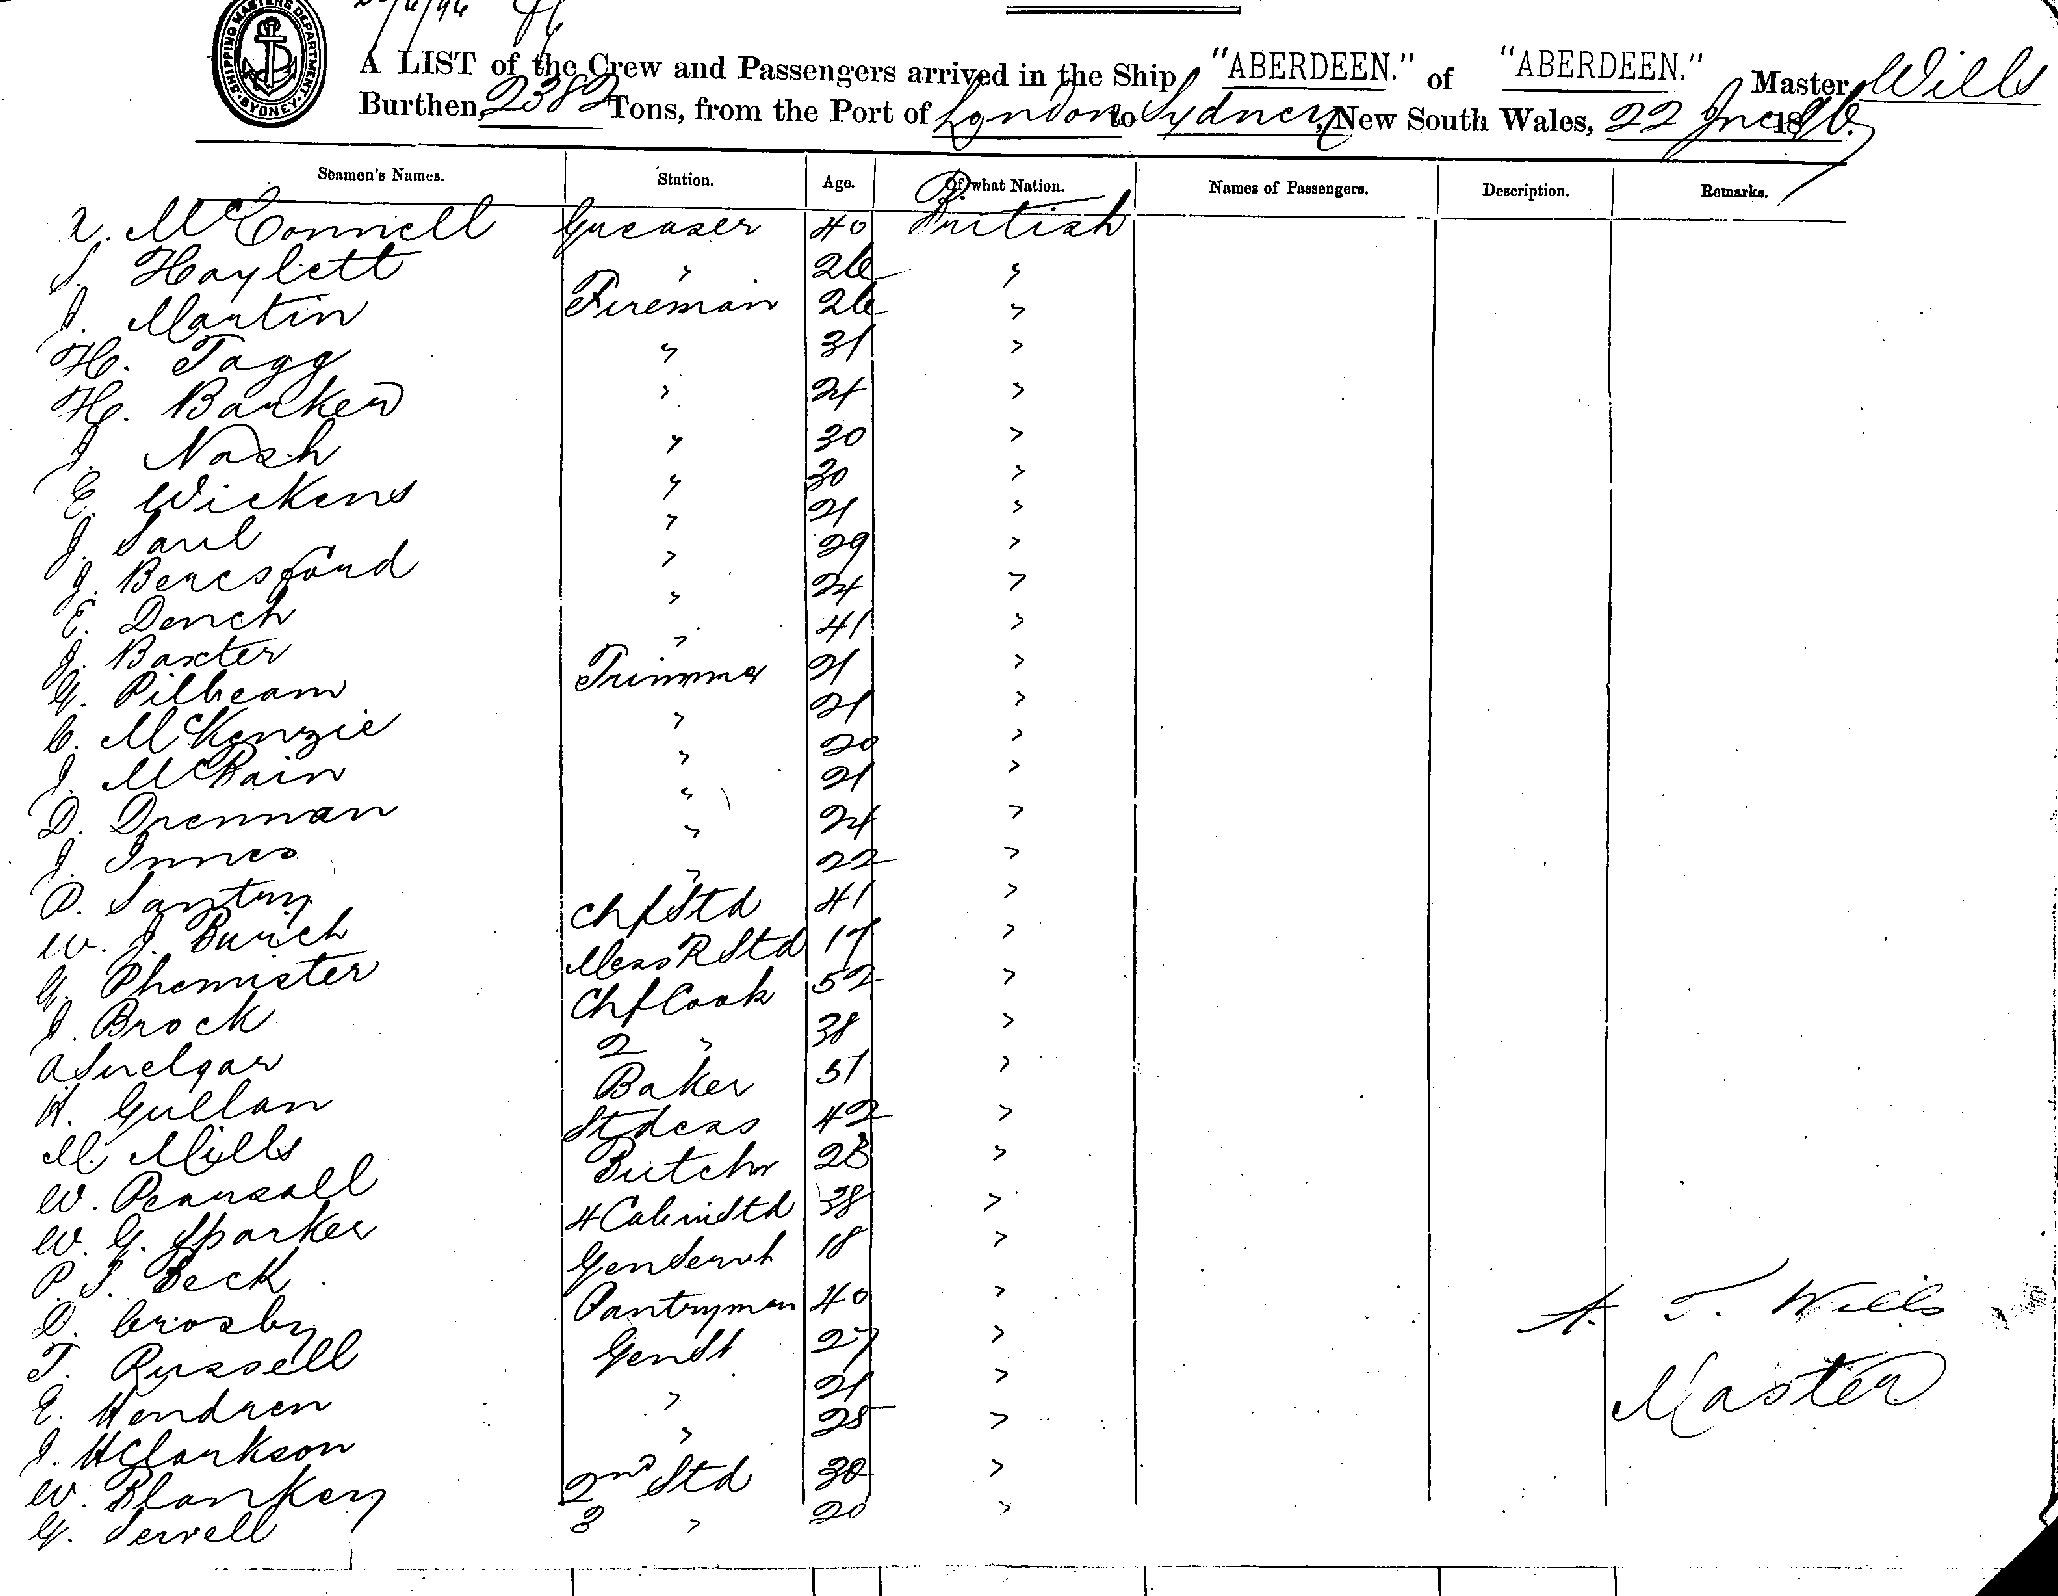 SHIPPING MASTERS DEPARTMENT. SYDNEY.
A LIST of the Crew and Passengers arrived in the Ship "ABERDEEN." of "ABERDEEN." Master, Wills
Burthen, 2382 Tons, from the Port of London to Sydney, New South Wales, 22 Jne 1896.
Seamen's Names. Station. Age. Of what Nation. Names of Passengers. Description. Remarks.
McConnell Greaser 40 British
S. Haylett " 26 "
J. Martin Fireman 26 "
H. Tagg " 31 "
H. Barker " 24 "
J. Nash " 30 "
E. Wickens " 30 "
J. Saul " 21 "
J. Beresford " 29 "
E. Dench " 24 "
J. Baxter " 41 "
G. Pilbeam Trimmer 21 "
C. McKenzie " 21 "
J. McBain " 20 "
D. Drennan " 21 "
J. Innes " 24 "
P. Santry " 22 "
W. J. Burch Chf Std 41 "
G. Phemister Mess R Std 17 "
J. Brock Chf Cook 52 "
A Snelgar 2 " 38 "
H. Gullan Baker 51 "
M. Mills Stdess 42 "
W. Pearsall Butchr 28 "
W. G. Sparkes 4 Cabin Std 38 "
P. S. Beck Gen Servt 18 "
D. Crosby Pantryman 40 "
T. Russell Gen St 27 "
E. Hendren " 21 "
J. H Clarkson " 28 "
W. Blankey 2nd Std 30 "
G. Servell 3 " 20 "
A. T. Wills
Master